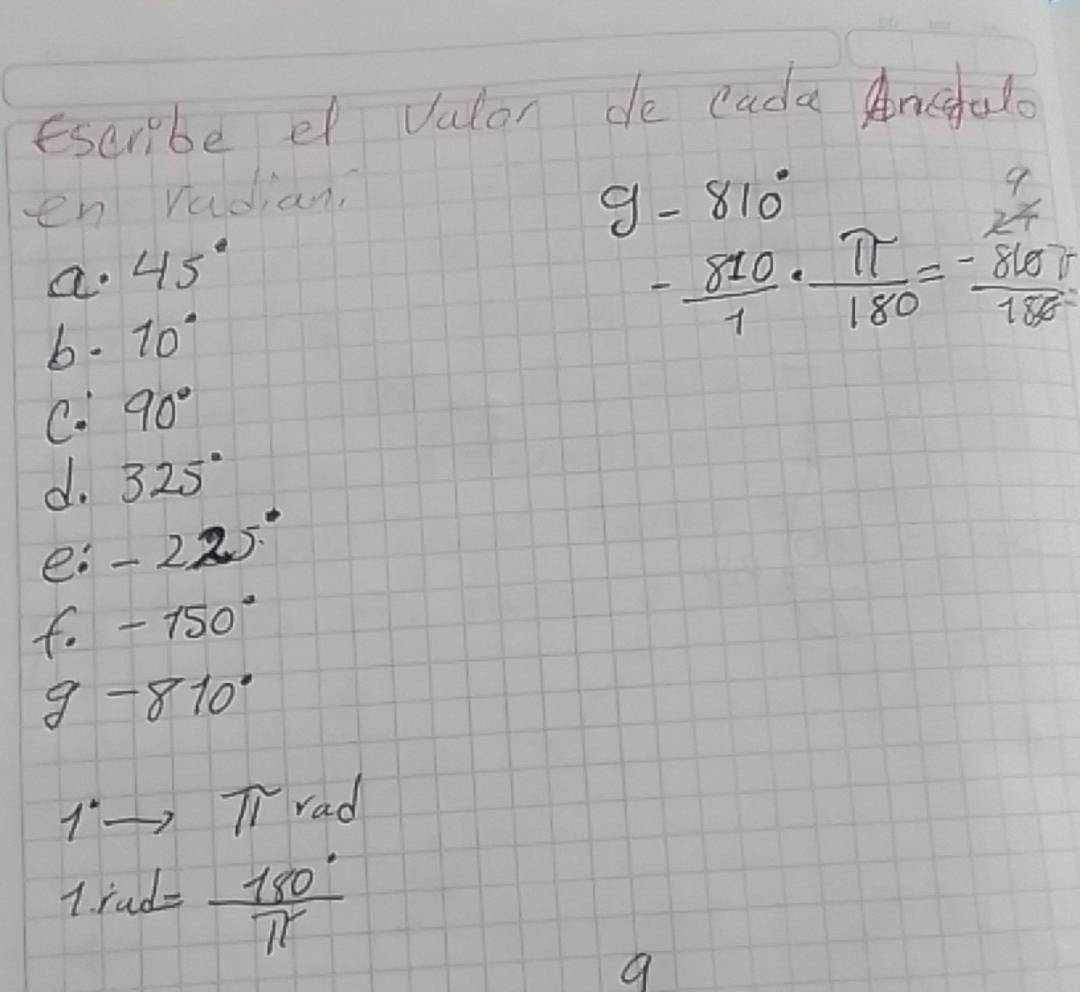 Escribe el Valor de cada
en radian.
a. 45°
b. 10°
c. 90°
d. 325°
e. -225°
f. -150°
g -810°
1° → π rad
1 rad = 180° / π
g - 810°
- 810 / 1 · π / 180 = - 810 π / 180 =
9
27
9